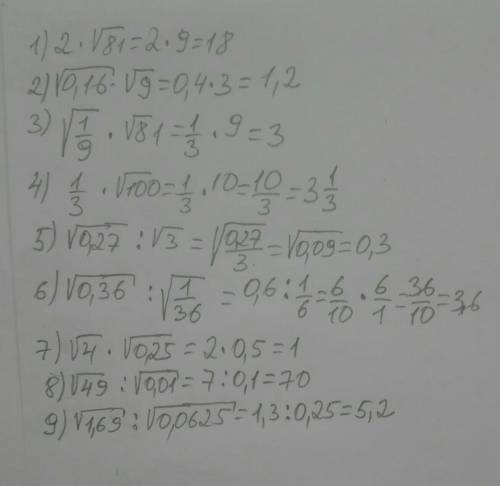 1) 2 · √81 = 2 · 9 = 18
2) √0,16 · √9 = 0,4 · 3 = 1,2
3) √(1/9) · √81 = 1/3 · 9 = 3
4) 1/3 · √100 = 1/3 · 10 = 10/3 = 3 1/3
5) √0,27 : √3 = √(0,27/3) = √0,09 = 0,3
6) √0,36 : √(1/36) = 0,6 : 1/6 = 6/10 · 6/1 = 36/10 = 3,6
7) √4 · √0,25 = 2 · 0,5 = 1
8) √49 : √0,01 = 7 : 0,1 = 70
9) √1,69 : √0,0625 = 1,3 : 0,25 = 5,2